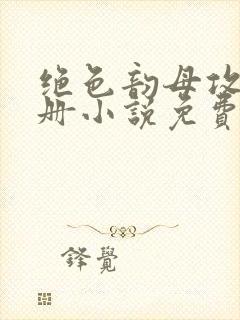 绝色韵母攻
册小說免費
鋒覺